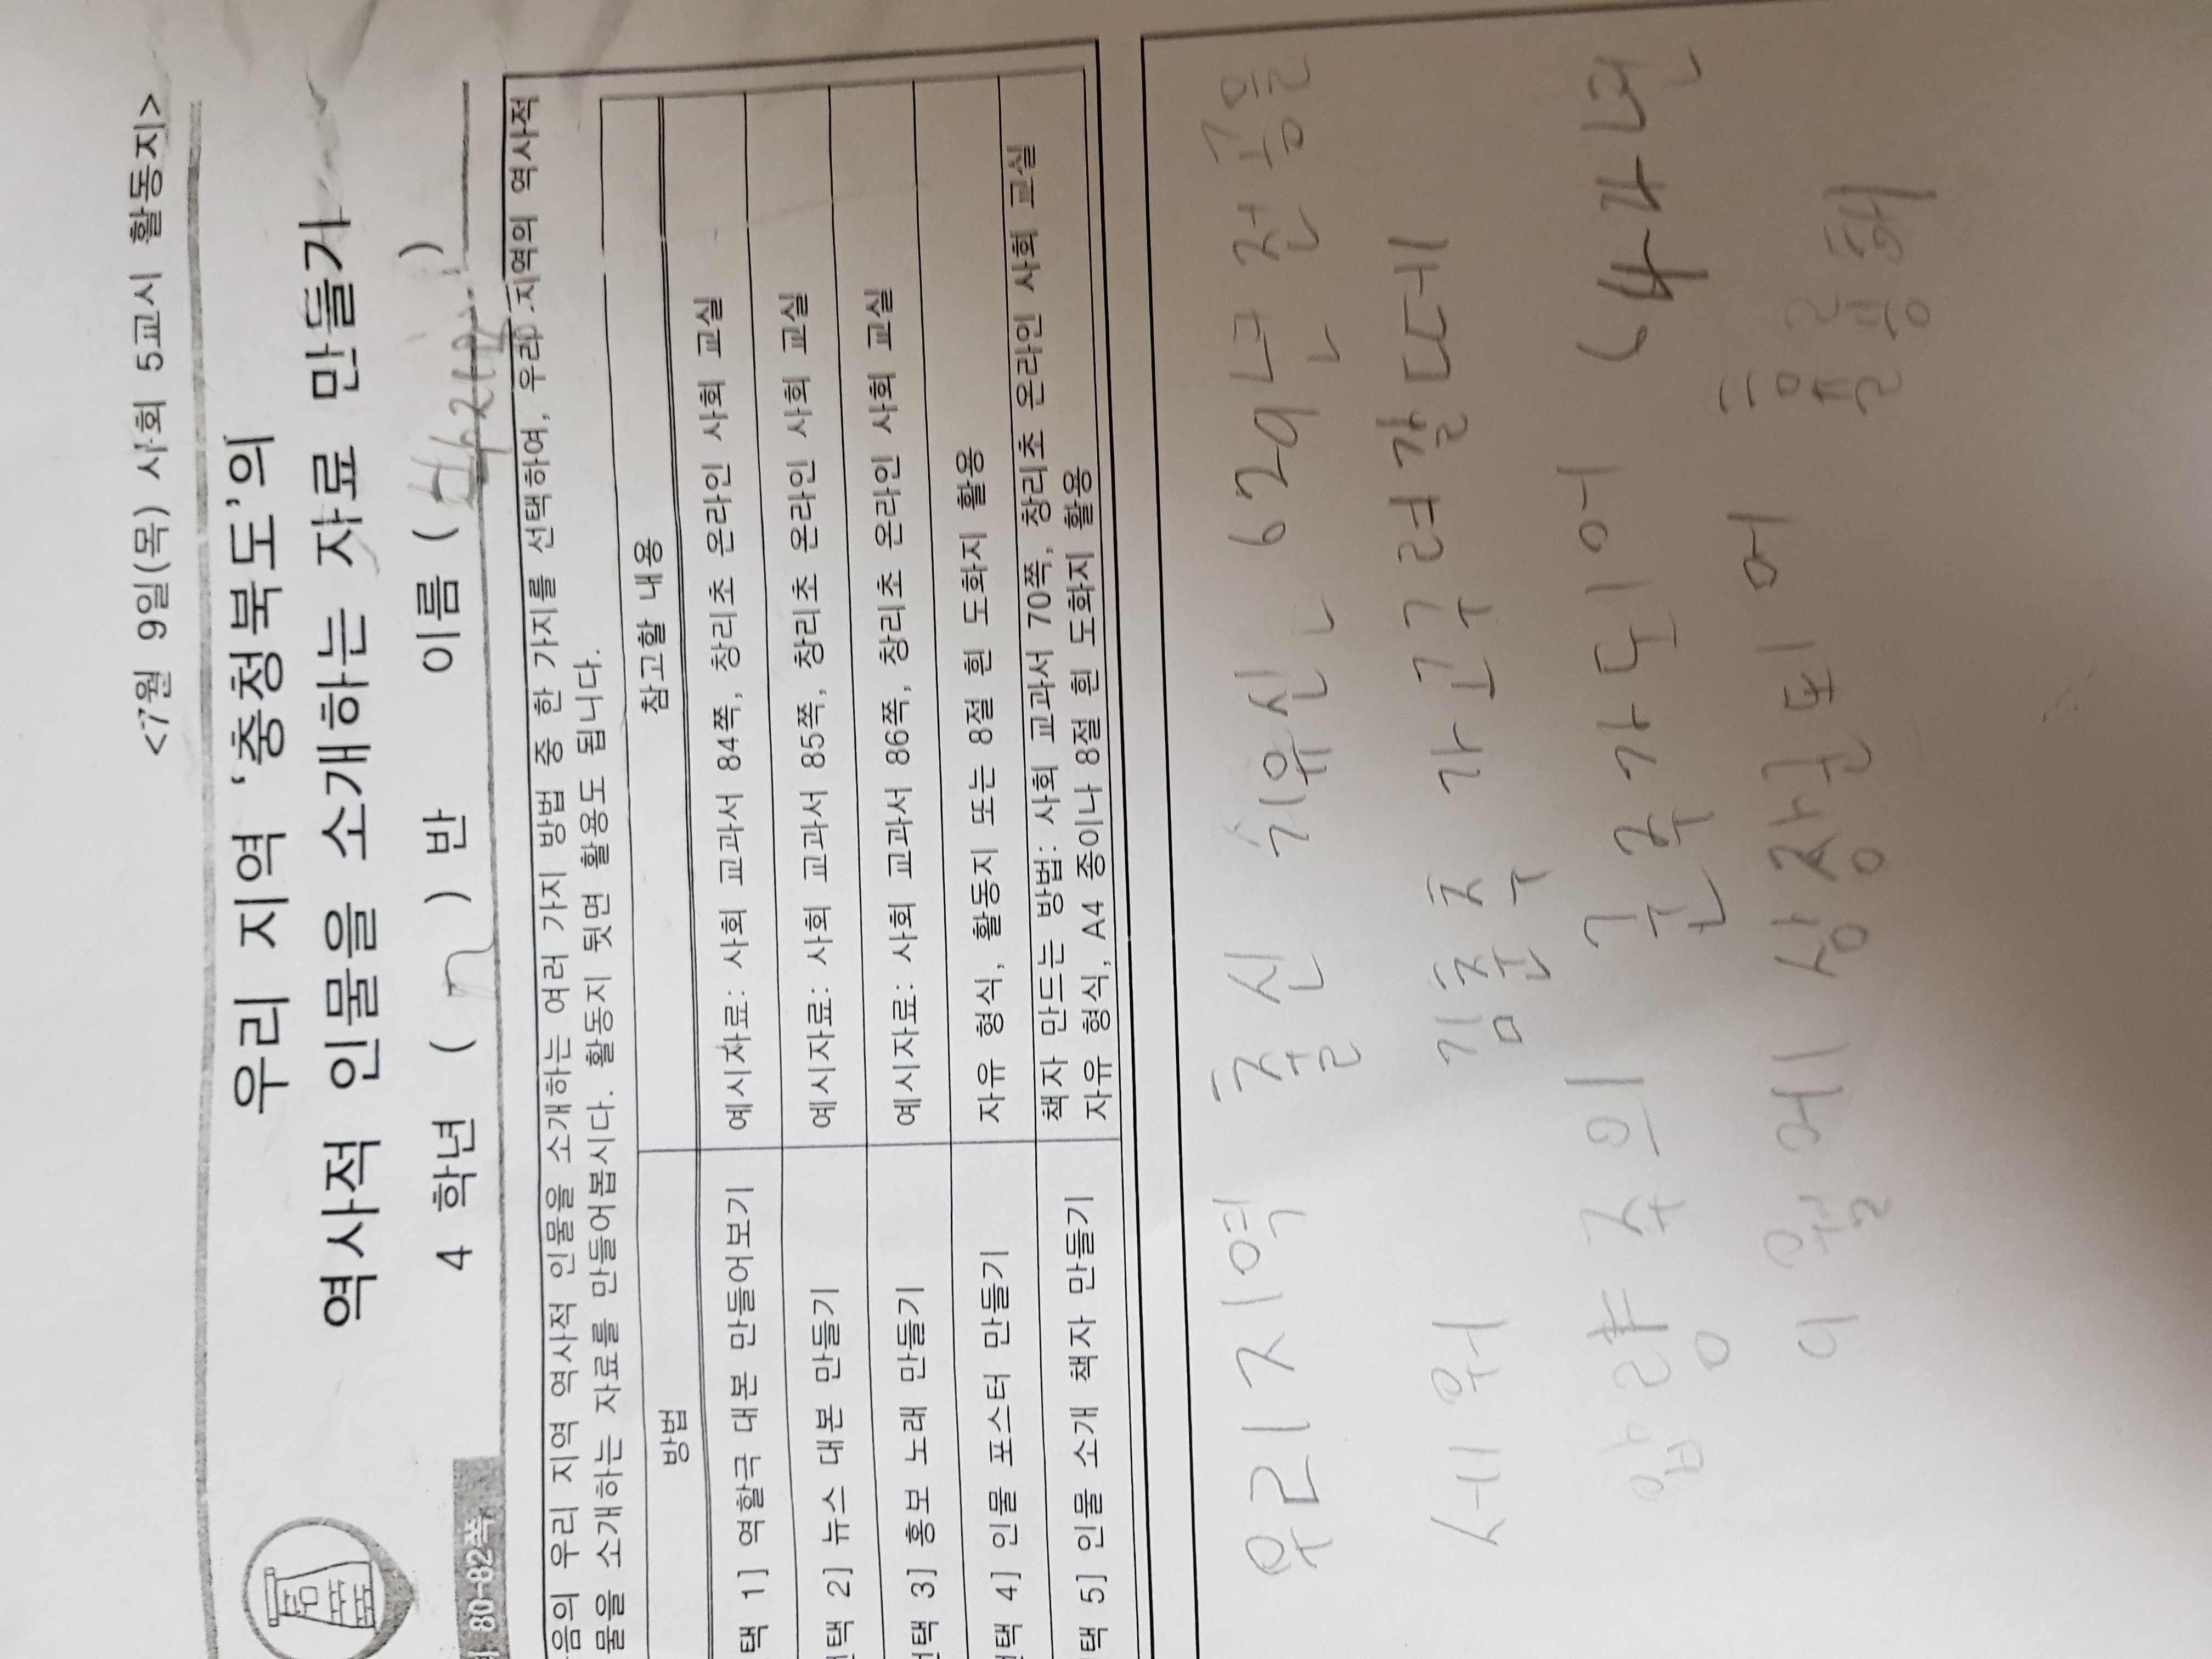 <7월 9일(목) 사회 5교시 활동지>
우리 지역 '충청북도'의
역사적 인물을 소개하는 자료 만들기
4 학년 ( 7 ) 반 이름 ( )
80-82쪽
음의 우리 지역 역사적 인물을 소개하는 여러 가지 방법 중 한 가지를 선택하여, 우리 지역의 역사적
물을 소개하는 자료를 만들어봅시다. 활동지 뒷면 활용도 됩니다.
방법 참고할 내용
택 1] 역할극 대본 만들어보기 예시자료: 사회 교과서 84쪽, 창리초 온라인 사회 교실
택 2] 뉴스 대본 만들기 예시자료: 사회 교과서 85쪽, 창리초 온라인 사회 교실
택 3] 홍보 노래 만들기 예시자료: 사회 교과서 86쪽, 창리초 온라인 사회 교실
택 4] 인물 포스터 만들기 자유 형식, 활동지 또는 8절 흰 도화지 활용
택 5] 인물 소개 책자 만들기 책자 만드는 방법: 사회 교과서 70쪽, 창리초 온라인 사회 교실
자유 형식, A4 종이나 8절 흰 도화지 활용
우리지역 출신 629년 전공을
세워 김춘추 가고구려갈떼
압량주의 군주가되어 644년
9월에 상장군되어 훌륭해